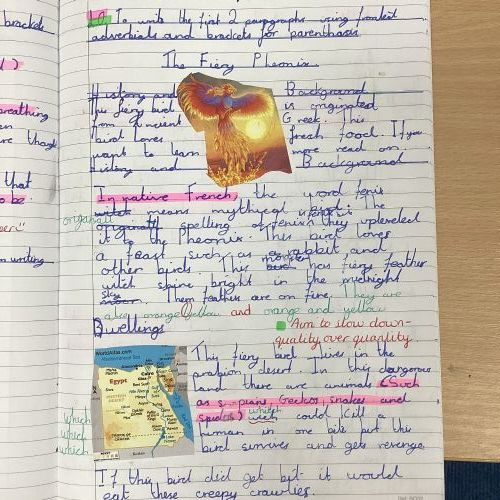 brackets
L.O To write the first 2 paragraphs using fronted
adverbials and brackets for parenthasis.
The Fiery Pheonix
History and Background
This fiery bird is originated
from ancient Greek. This
bird loves fresh food. If you
want to learn more read on.
History and Background
In native French, the word fenix
witch means mythical bird. The
origanall
spelling of fenix is they upleveled
it to the Pheonix. This bird loves
a feast such as a rabbit and
other birds. This monster bird has fiery feather
witch shine bright in the midnight
sky
moon. Them feathers are on fire. They are
also orange yellow and orange and yellow
Dwellings
Aim to slow down-
quality over quantity.
WorldAtlas.com
Egypt
Cairo
This fiery bird lives in the
arabian desert. In this dangerous
land there are animals (Such
as scorpians, Geckos, snakes and
spiders) which witch could kill a
human in one bite but this
bird survives and gets revenge.
which
which
which
If this bird did get bit it would
eat these creepy crawlies.
breathing
are though
that
to be.
writing